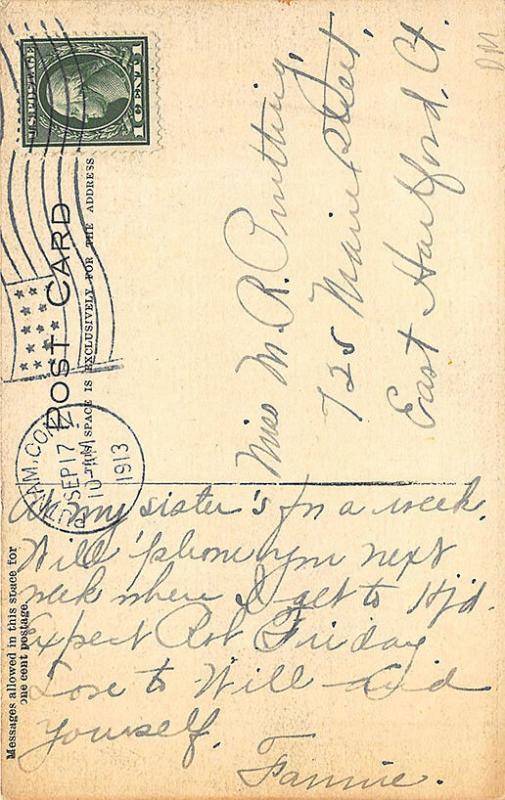 U.S. POSTAGE
1 CENT 1
POST CARD
THIS SPACE IS EXCLUSIVELY FOR THE ADDRESS
PUTNAM, CONN.
SEP 17
10 AM
1913
Miss M. R.
725 Main Street,
East Hartford, Ct.
Messages allowed in this space for
one cent postage.
At my sister's for a week.
Will 'phone you next
week when I get to Htfd.
Expect Rob Friday
Love to Will and
yourself.
Fannie.